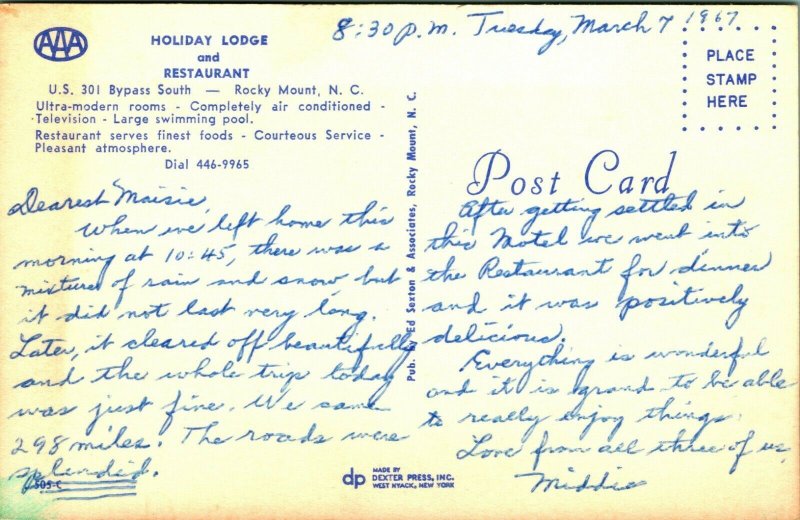 AAA
HOLIDAY LODGE
and
RESTAURANT
U.S. 301 Bypass South — Rocky Mount, N. C.
Ultra-modern rooms - Completely air conditioned -
Television - Large swimming pool.
Restaurant serves finest foods - Courteous Service -
Pleasant atmosphere.
Dial 446-9965
8:30 p.m. Tuesday, March 7, 1967
PLACE
STAMP
HERE
Post Card
Dearest Maisie,
When we left home this
morning at 10:45, there was a
mixture of rain and snow, but
it did not last very long.
Later, it cleared off beautifully
and the whole trip today
was just fine. We came
298 miles. The roads were
splendid.
Pub. by Ed Sexton & Associates, Rocky Mount, N. C.
After getting settled in
this Motel we went into
the Restaurant for dinner
and it was positively
delicious.
Everything is wonderful
and it is grand to be able
to really enjoy things.
Love from all three of us,
Middie
505-C
dp
MADE BY
DEXTER PRESS, INC.
WEST NYACK, NEW YORK